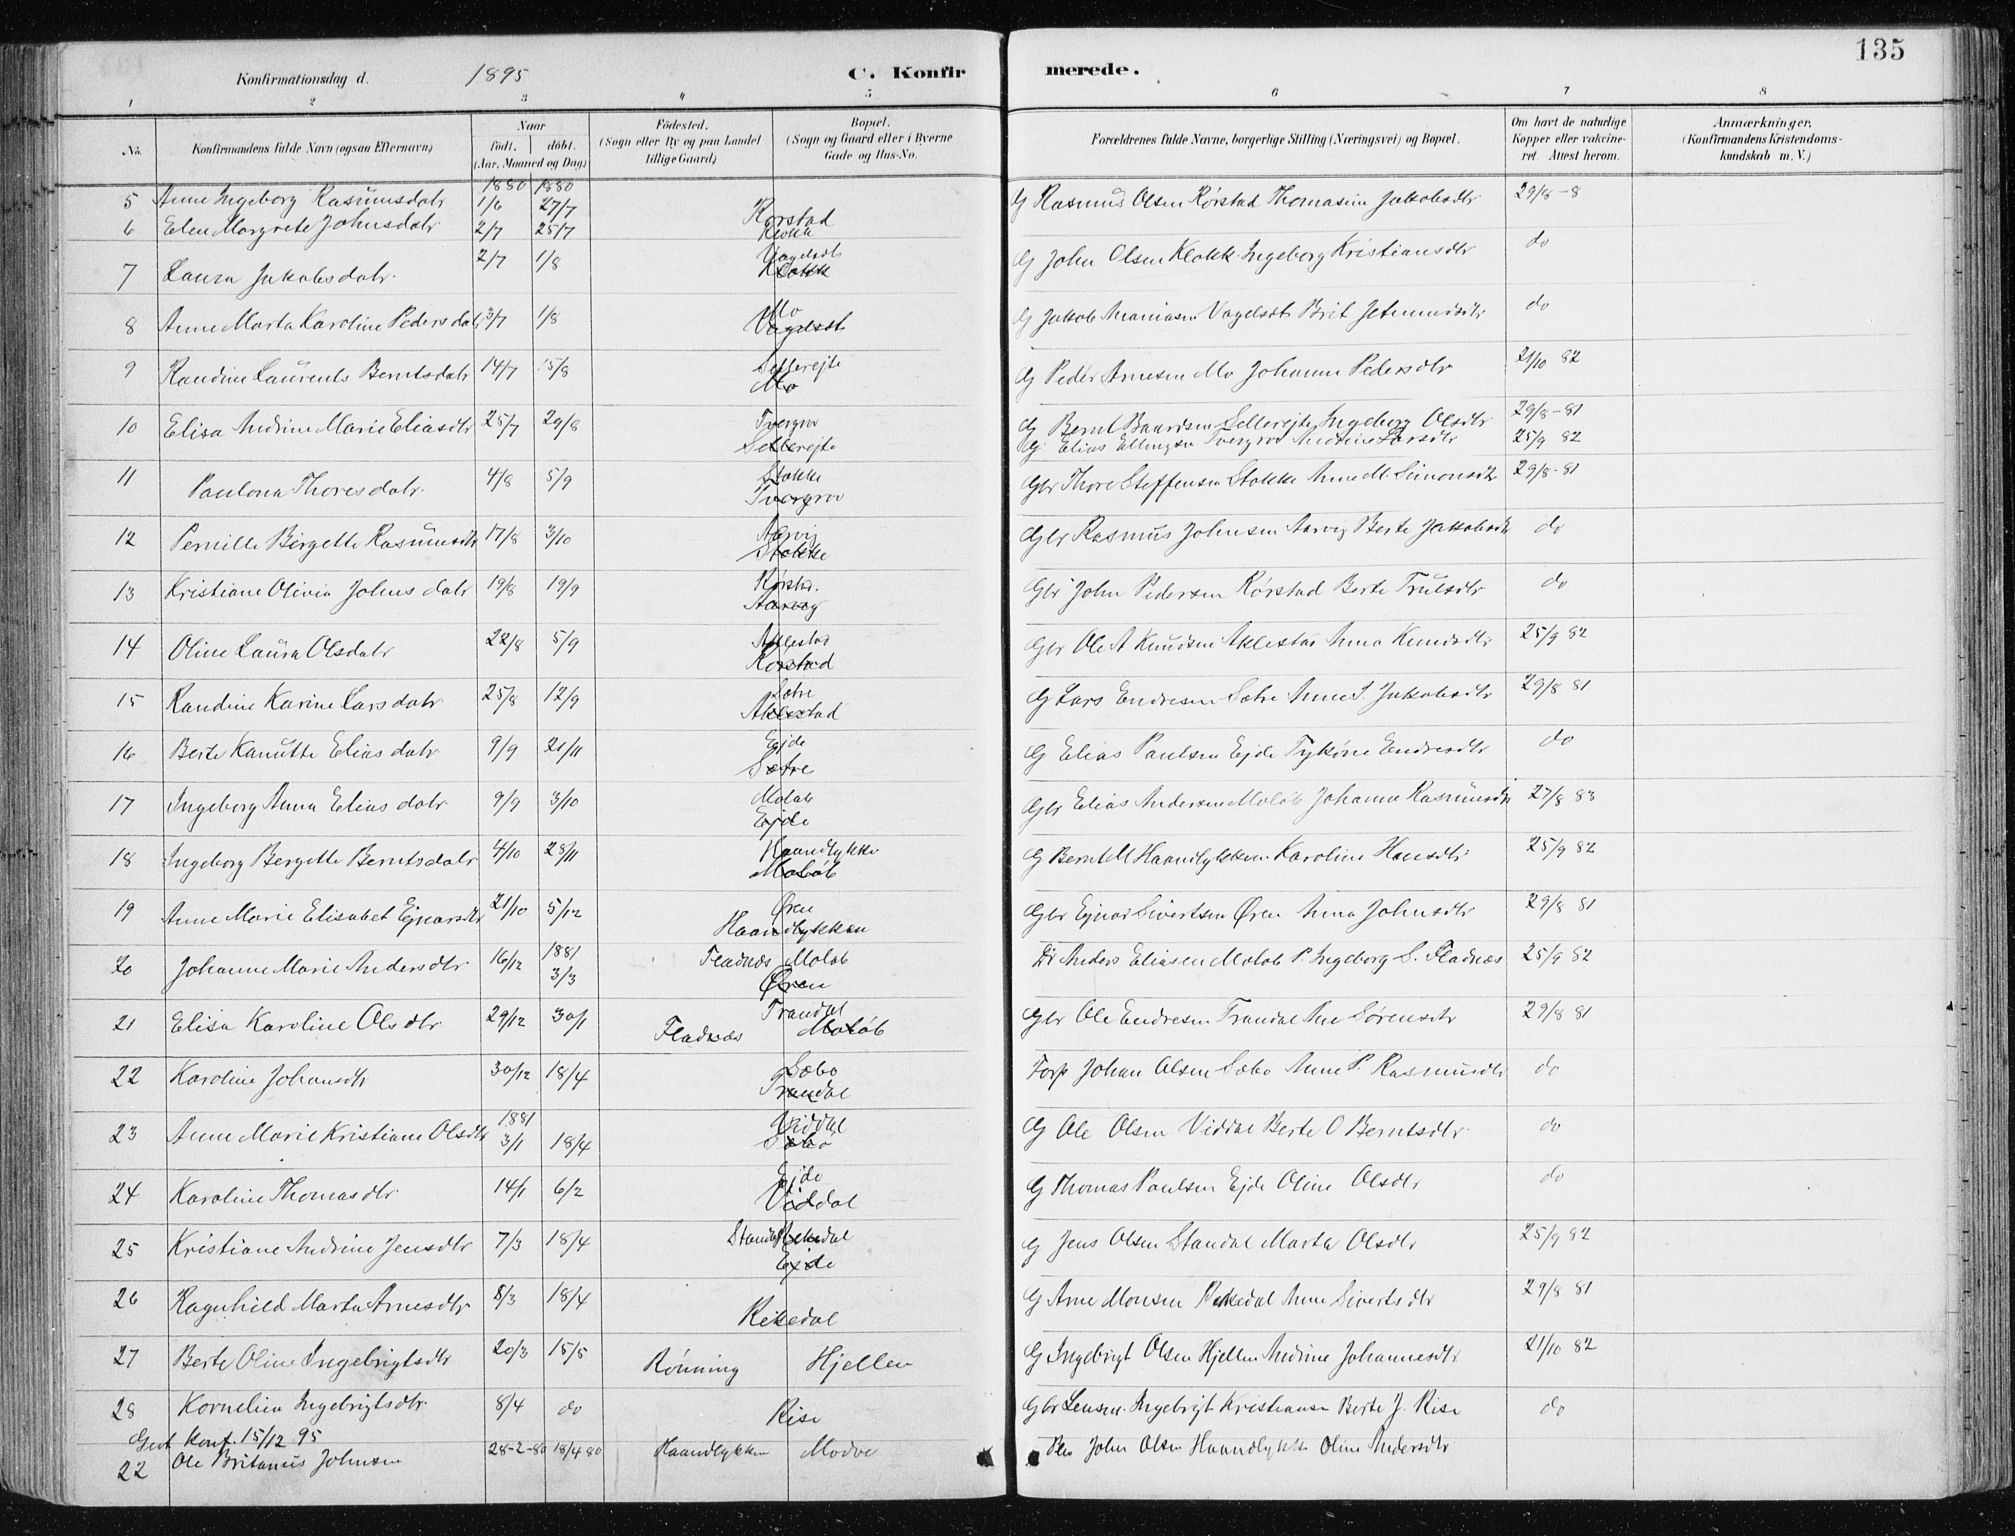 135
Konfirmationsdag d. 1895 C. Konfir merede.
1 2 3 4 5 6 7 8
No. Konfirmandens fulde Navn (ogsaa Efternavn) Naar født. døbt. (Aar, Maaned og Dag) Fødested. (Sogn eller By og paa Landet tillige Gaard) Bopæl. (Sogn og Gaard eller i Byerne Gade og Hus-No. Forældrenes fulde Navne, borgerlige Stilling (Næringsvei) og Bopæl. Om havt de naturlige Kopper eller vakcineret. Attest herom. Anmærkninger. (Konfirmandens Kristendomskundskab m. V.)
1880 1880
5 Anne Ingeborg Rasmusdatr 1/6 27/7 Rørstad G Rasmus Olsen Rørstad Thomasine Jakobsdtr 29/8-8
6 Elen Margrete Johnsdatr 2/7 25/7 Klokk G John Olsen Klokk Ingeborg Kristiansdtr do
7 Laura Jakobsdatr 2/7 1/8 Vagelsdt Klokk G Jakob Ananiasen Vagelsdt Brit Jetmundsdtr do
8 Anne Marta Karoline Pedersdatr 3/7 1/8 Mo Vagelsdt G Peder Arnesen Mo Johanne Pedersdtr 21/10 82
9 Randine Laurents Berntsdatr 14/7 15/8 Sellerejte Mo G Bernt Baardsen Sellerejte Ingeborg Olsdtr 29/8-81
10 Elisa Andrine Marie Eliasdtr 25/7 29/8 Tvergrov Sellerejte G Elias Ellingsen Tvergrov Andrine Larsdtr 25/9 82
11 Paulona Thoresdatr 4/8 5/9 Stokke Tvergrov Gbr Thore Steffensen Stokke Anne M. Simonsdtr 29/8-81
12 Pernille Birgette Rasmusdtr 17/8 3/10 Aarvig Stokke Gbr Rasmus Johnsen Aarvig Berte Jakobsdtr do
13 Kristiane Olivia Johnsdatr 19/8 19/9 Rørstd. Aarvig Gbr John Pedersen Rørstad Berte Trulsdtr do
14 Oline Laura Olsdatr 22/8 5/9 Aklestad Rørstad Gbr Ole A Knudsen Aklestad Anna Knudsdtr 25/9 82
15 Randine Karine Larsdatr 25/8 12/9 Sætre Aklestad G Lars Endresen Sætre Anne S. Jakobsdtr 29/8 81
16 Berte Kanutte Eliasdatr 9/9 21/11 Ejde Sætre G Elias Paulsen Ejde Endresdtr do
17 Ingeborg Anna Eliasdatr 9/9 3/10 Moløb Ejde Gbr Elias Andersen Moløb Johanne Rasmusdtr 27/8 83
18 Ingeborg Bergette Berntsdatr 4/10 28/11 Haandlykke Moløb G Bernt M Haandlykken Karoline Hansdtr 25/9 82
19 Anne Marie Elisabet Ejnarsdtr 21/10 5/12 Øren Haandlykken Gbr Ejnar Sivertsen Øren Anna Johnsdtr 29/8 81
20 Johanne Marie Andersdtr 16/12 1881 3/3 Fladnæs Moløb Øren Anders Eliasen Moløb P. Ingeborg S. Fladnæs 25/9 82
21 Elisa Karoline Olsdtr 29/12 30/1 Fladnæs Trandal Moløb Gbr Ole Endresen Trandal Ane Sørensdtr 29/8 81
22 Karoline Johansdtr 30/12 18/4 Sæbo Trandal Forp Johan Olsen Sæbo Anne P. Rasmusdtr do
23 Anne Marie Kristiane Olsdtr 1881 3/1 18/4 Viddal Sæbo G Ole Olsen Viddal Berte O Berntsdtr do
24 Karoline Thomasdtr 14/1 6/2 Ejde Viddal G Thomas Paulsen Ejde Oline Olsdtr do
25 Kristiane Andrine Jensdtr 7/3 18/4 Standal Ejde G Jens Olsen Standal Marta Olsdtr 25/9 82
26 Ragnhild Marta Arnesdtr 8/3 18/4 Rekedal G Arne Monsen Rekedal Anne Sivertsdtr 29/8 81
27 Berte Oline Ingebrigtsdtr 20/3 15/5 Rønning Hjellen G Ingebrigt Olsen Hjellen Andrine Johannesdtr 21/10 82
28 Kornelia Ingebrigtsdtr 8/4 do Rise Gbr Lensm. Ingebrigt Kristiansen Berte J. Rise do
Gut konf. 15/12 95
22 Ole Britanus Johnsen 28-2-80 18/4 80 Haandlykken Modve John Olsen Haandlykke Oline Andersdtr